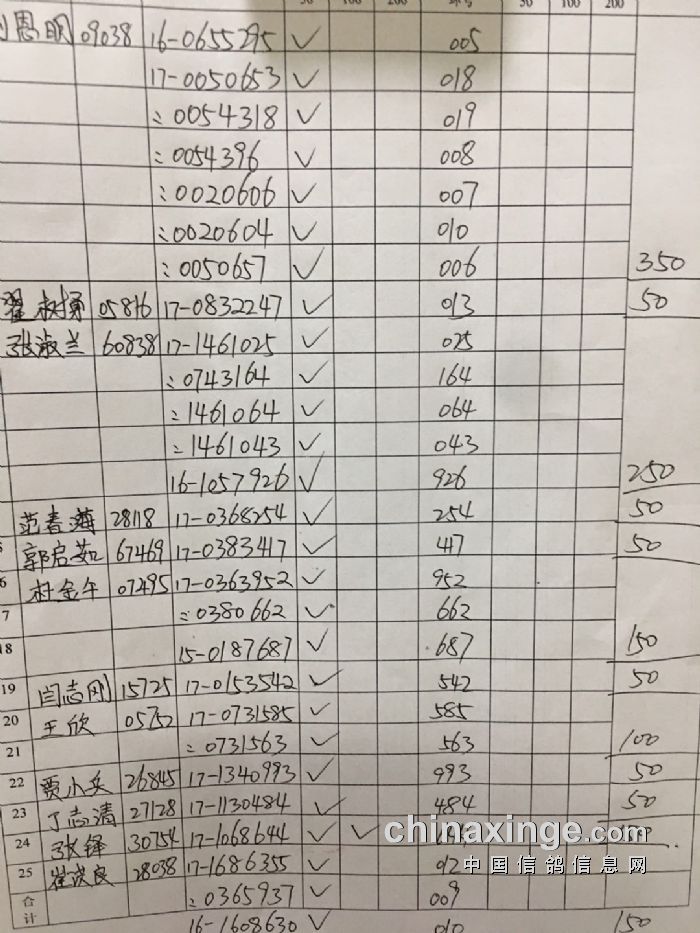 50 100 200 50 100 200
恩明 09038 16-0655295 ✓ 005
17-0050653 ✓ 018
:0054318 ✓ 019
:0054396 ✓ 008
:0020606 ✓ 007
:0020604 ✓ 010
:0050657 ✓ 006 350
翟树勇 05816 17-0832247 ✓ 013 50
张淑兰 60838 17-1461025 ✓ 025
:0743164 ✓ 164
:1461064 ✓ 064
:1461043 ✓ 043
16-1057926 ✓ 926 250
范春 28118 17-0368254 ✓ 254 50
郭启茹 67469 17-0383417 ✓ 417 50
6 杜金午 07495 17-0363952 ✓ 952
7 :0380662 ✓ 662
18 15-0187687 ✓ 687 150
19 闫志刚 15725 17-0153542 ✓ 542 50
20 王欣 05752 17-0731585 ✓ 585
21 :0731563 ✓ 563 100
22 贾小兵 26845 17-1340993 ✓ 993 50
23 丁志清 27128 17-1130484 ✓ 484 50
24 张铎 30754 17-1068644 ✓ ✓
chinaxinge.com
25 崔良 28038 17-1686355 ✓ 012
中国信鸽信息网
合计 :0365937 ✓ 009
16-1608630 ✓ 010 150